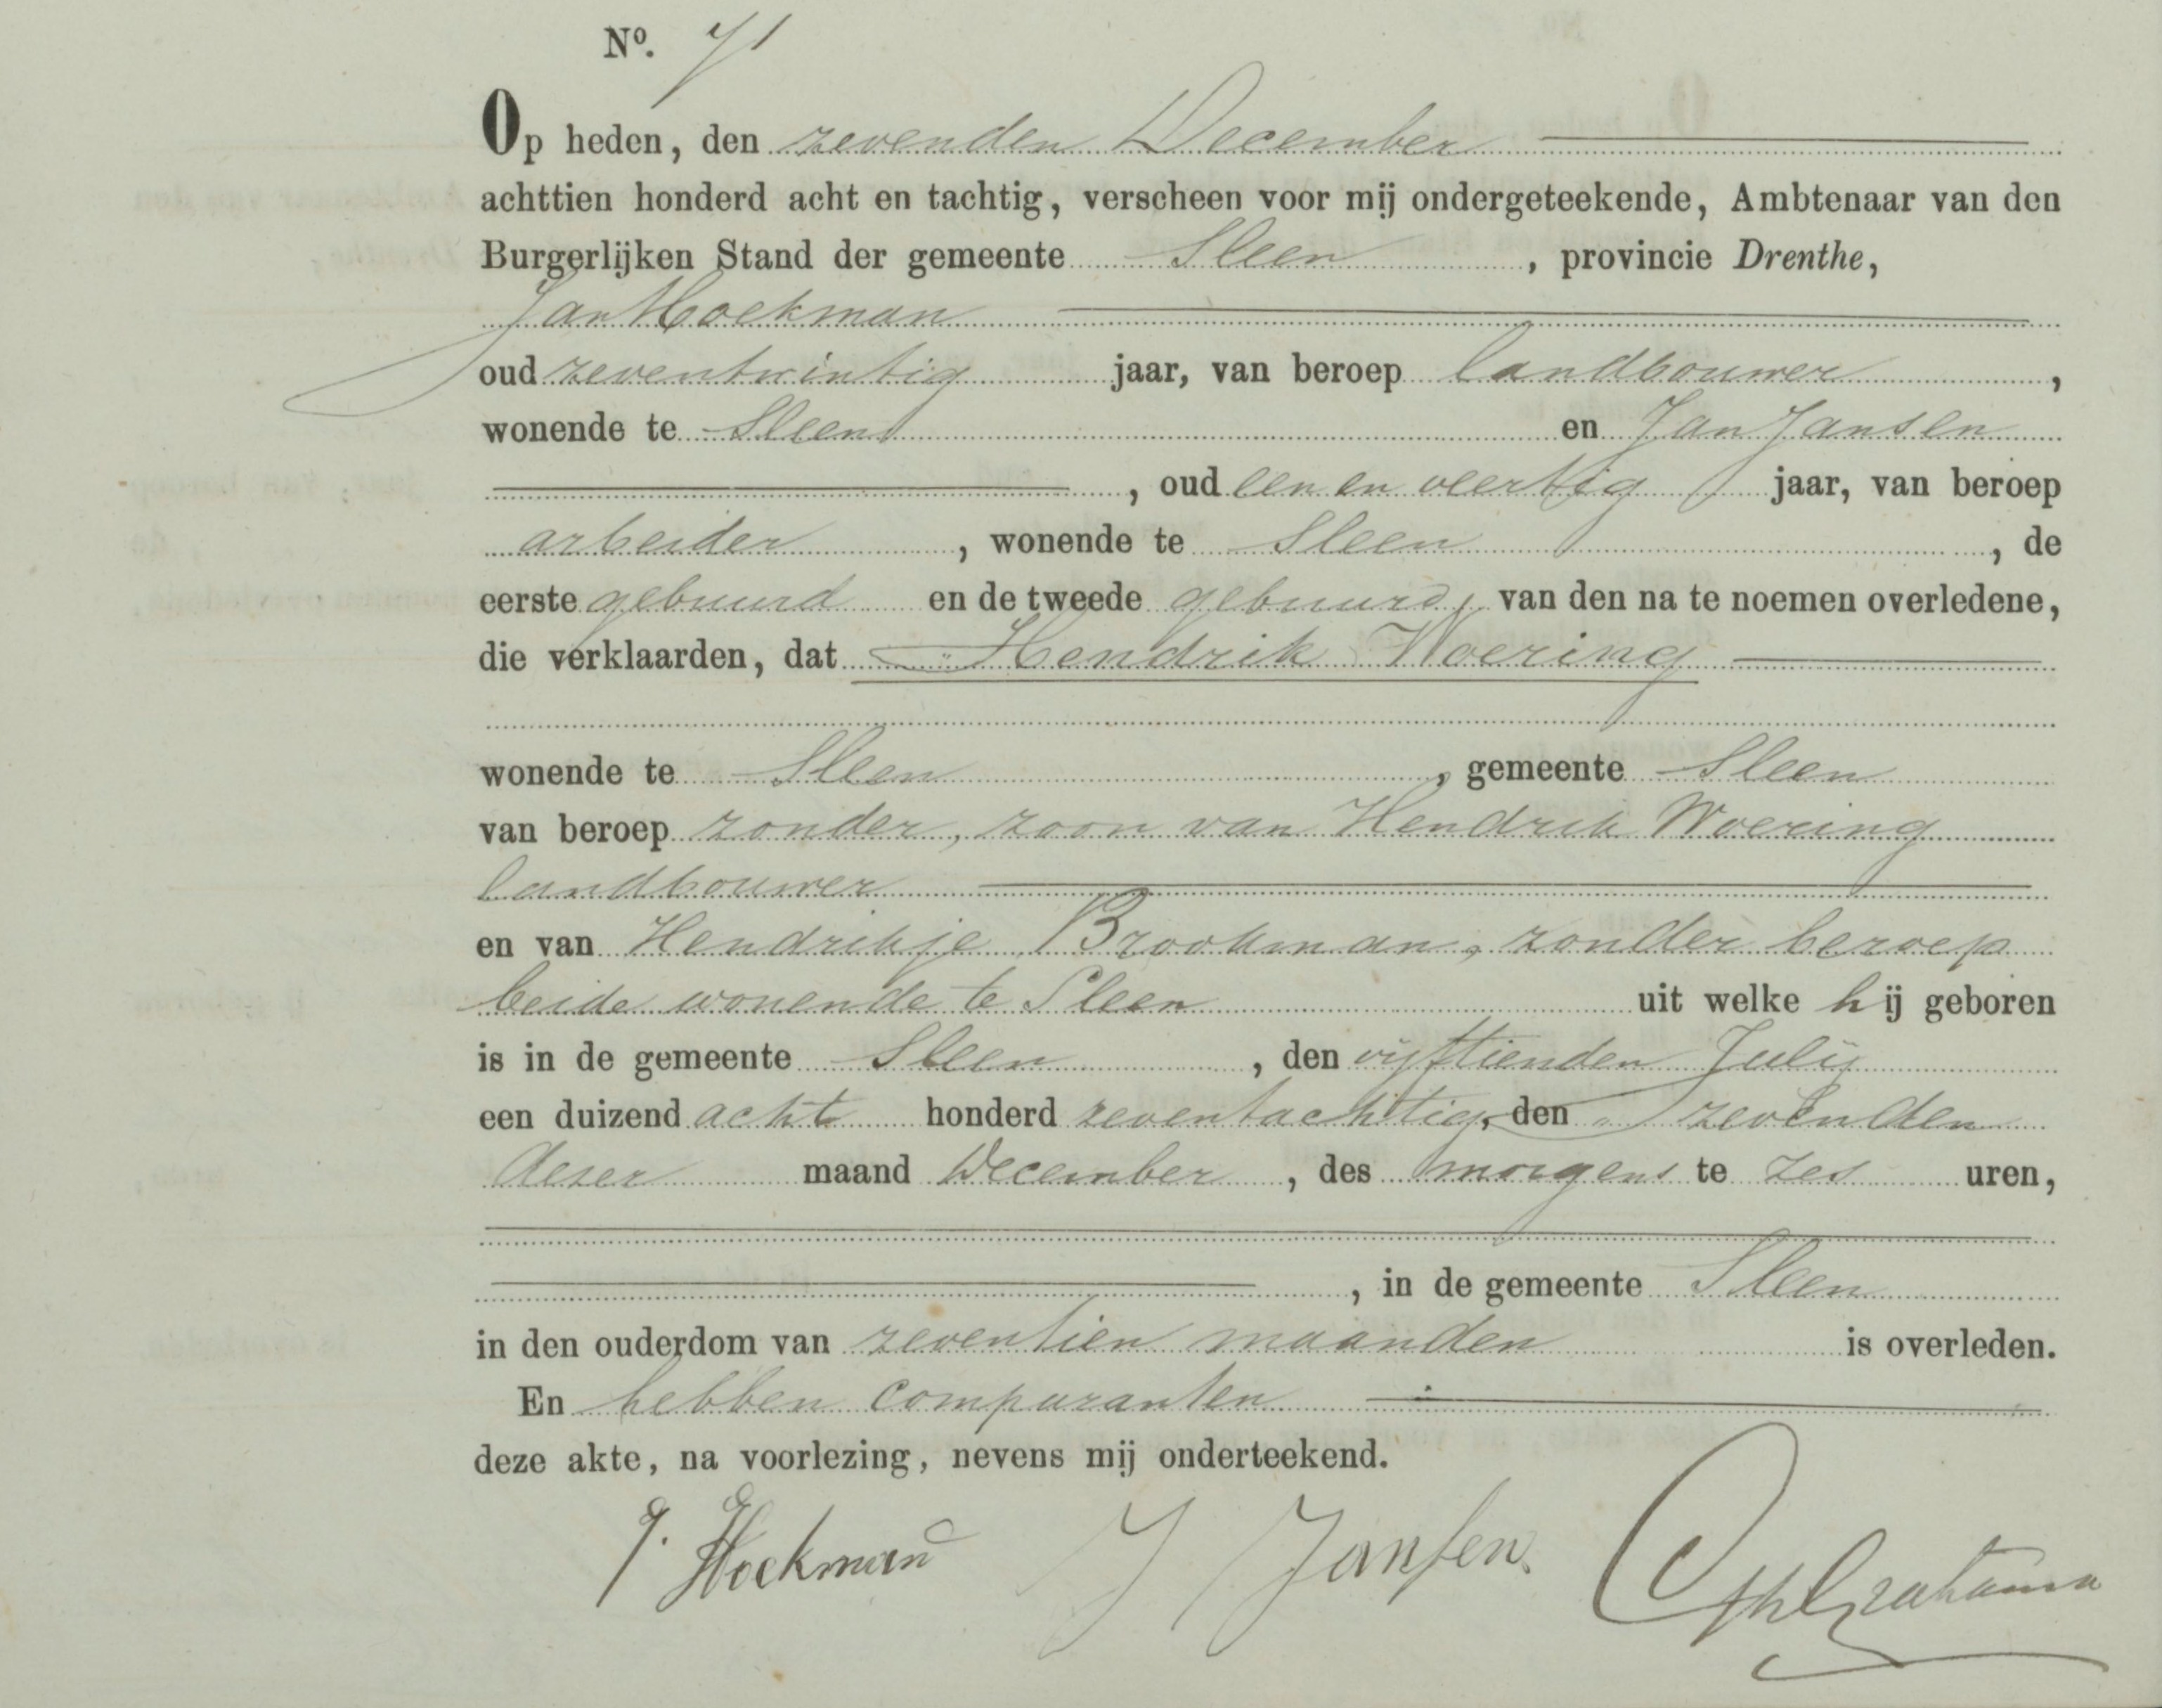 Nº. 71
Op heden, den zevenden December
achttien honderd acht en tachtig, verscheen voor mij ondergeteekende, Ambtenaar van den
Burgerlijken Stand der gemeente Sleen, provincie Drenthe,
Jan Hoekman
oud zeventwintig jaar, van beroep landbouwer,
wonende te Sleen en Jan Jansen
, oud een en veertig jaar, van beroep
arbeider, wonende te Sleen, de
eerste gebuurd en de tweede gebuurd, van den na te noemen overledene,
die verklaarden, dat Hendrik Woering
wonende te Sleen, gemeente Sleen
van beroep zonder, zoon van Hendrik Woering
landbouwer
en van Hendrikje Brookman, zonder beroep
beide wonende te Sleen uit welke hij geboren
is in de gemeente Sleen, den vijftienden Julij
een duizend acht honderd zeventachtig, den zevenden
dezer maand December, des morgens te zes uren,
, in de gemeente Sleen
in den ouderdom van zeventien maanden is overleden.
En hebben comparanten
deze akte, na voorlezing, nevens mij onderteekend.
J. Hoekman J Jansen.